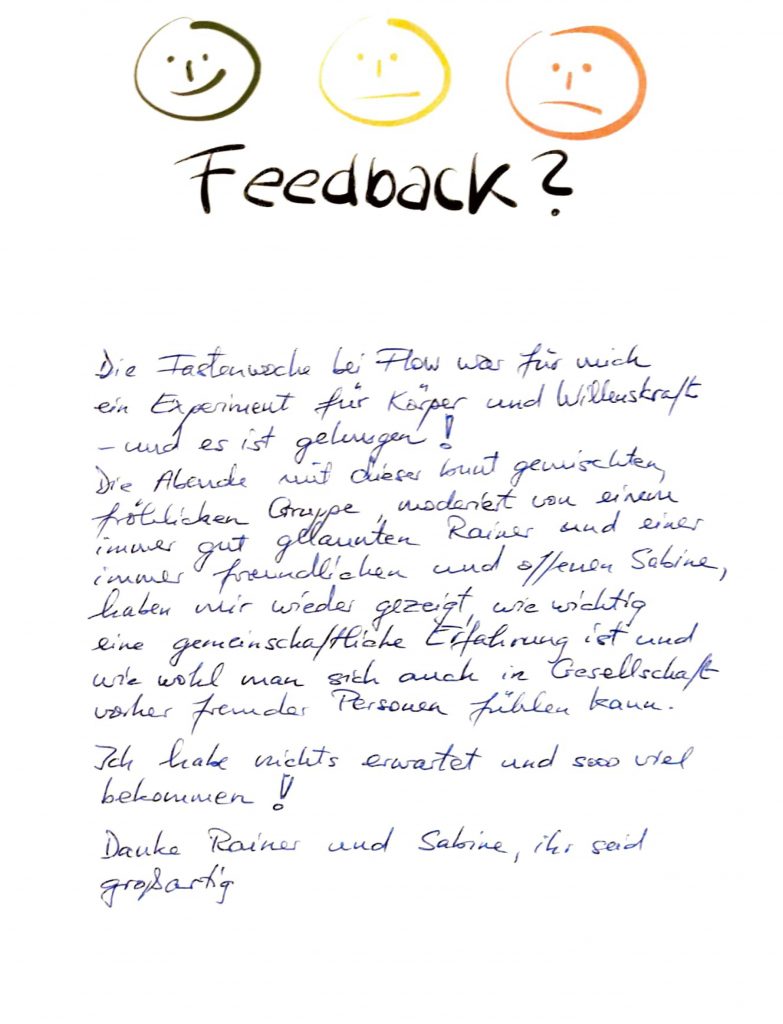 Feedback?
Die Fastenwoche bei Flow war für mich
ein Experiment für Körper und Willenskraft
– und es ist gelungen!
Die Abende mit dieser bunt gemischten,
fröhlichen Gruppe, moderiert von einem
immer gut gelaunten Rainer und einer
immer freundlichen und offenen Sabine,
haben mir wieder gezeigt, wie wichtig
eine gemeinschaftliche Erfahrung ist und
wie wohl man sich auch in Gesellschaft
vorher fremder Personen fühlen kann.
Ich habe nichts erwartet und sooo viel
bekommen!
Danke Rainer und Sabine, ihr seid
großartig